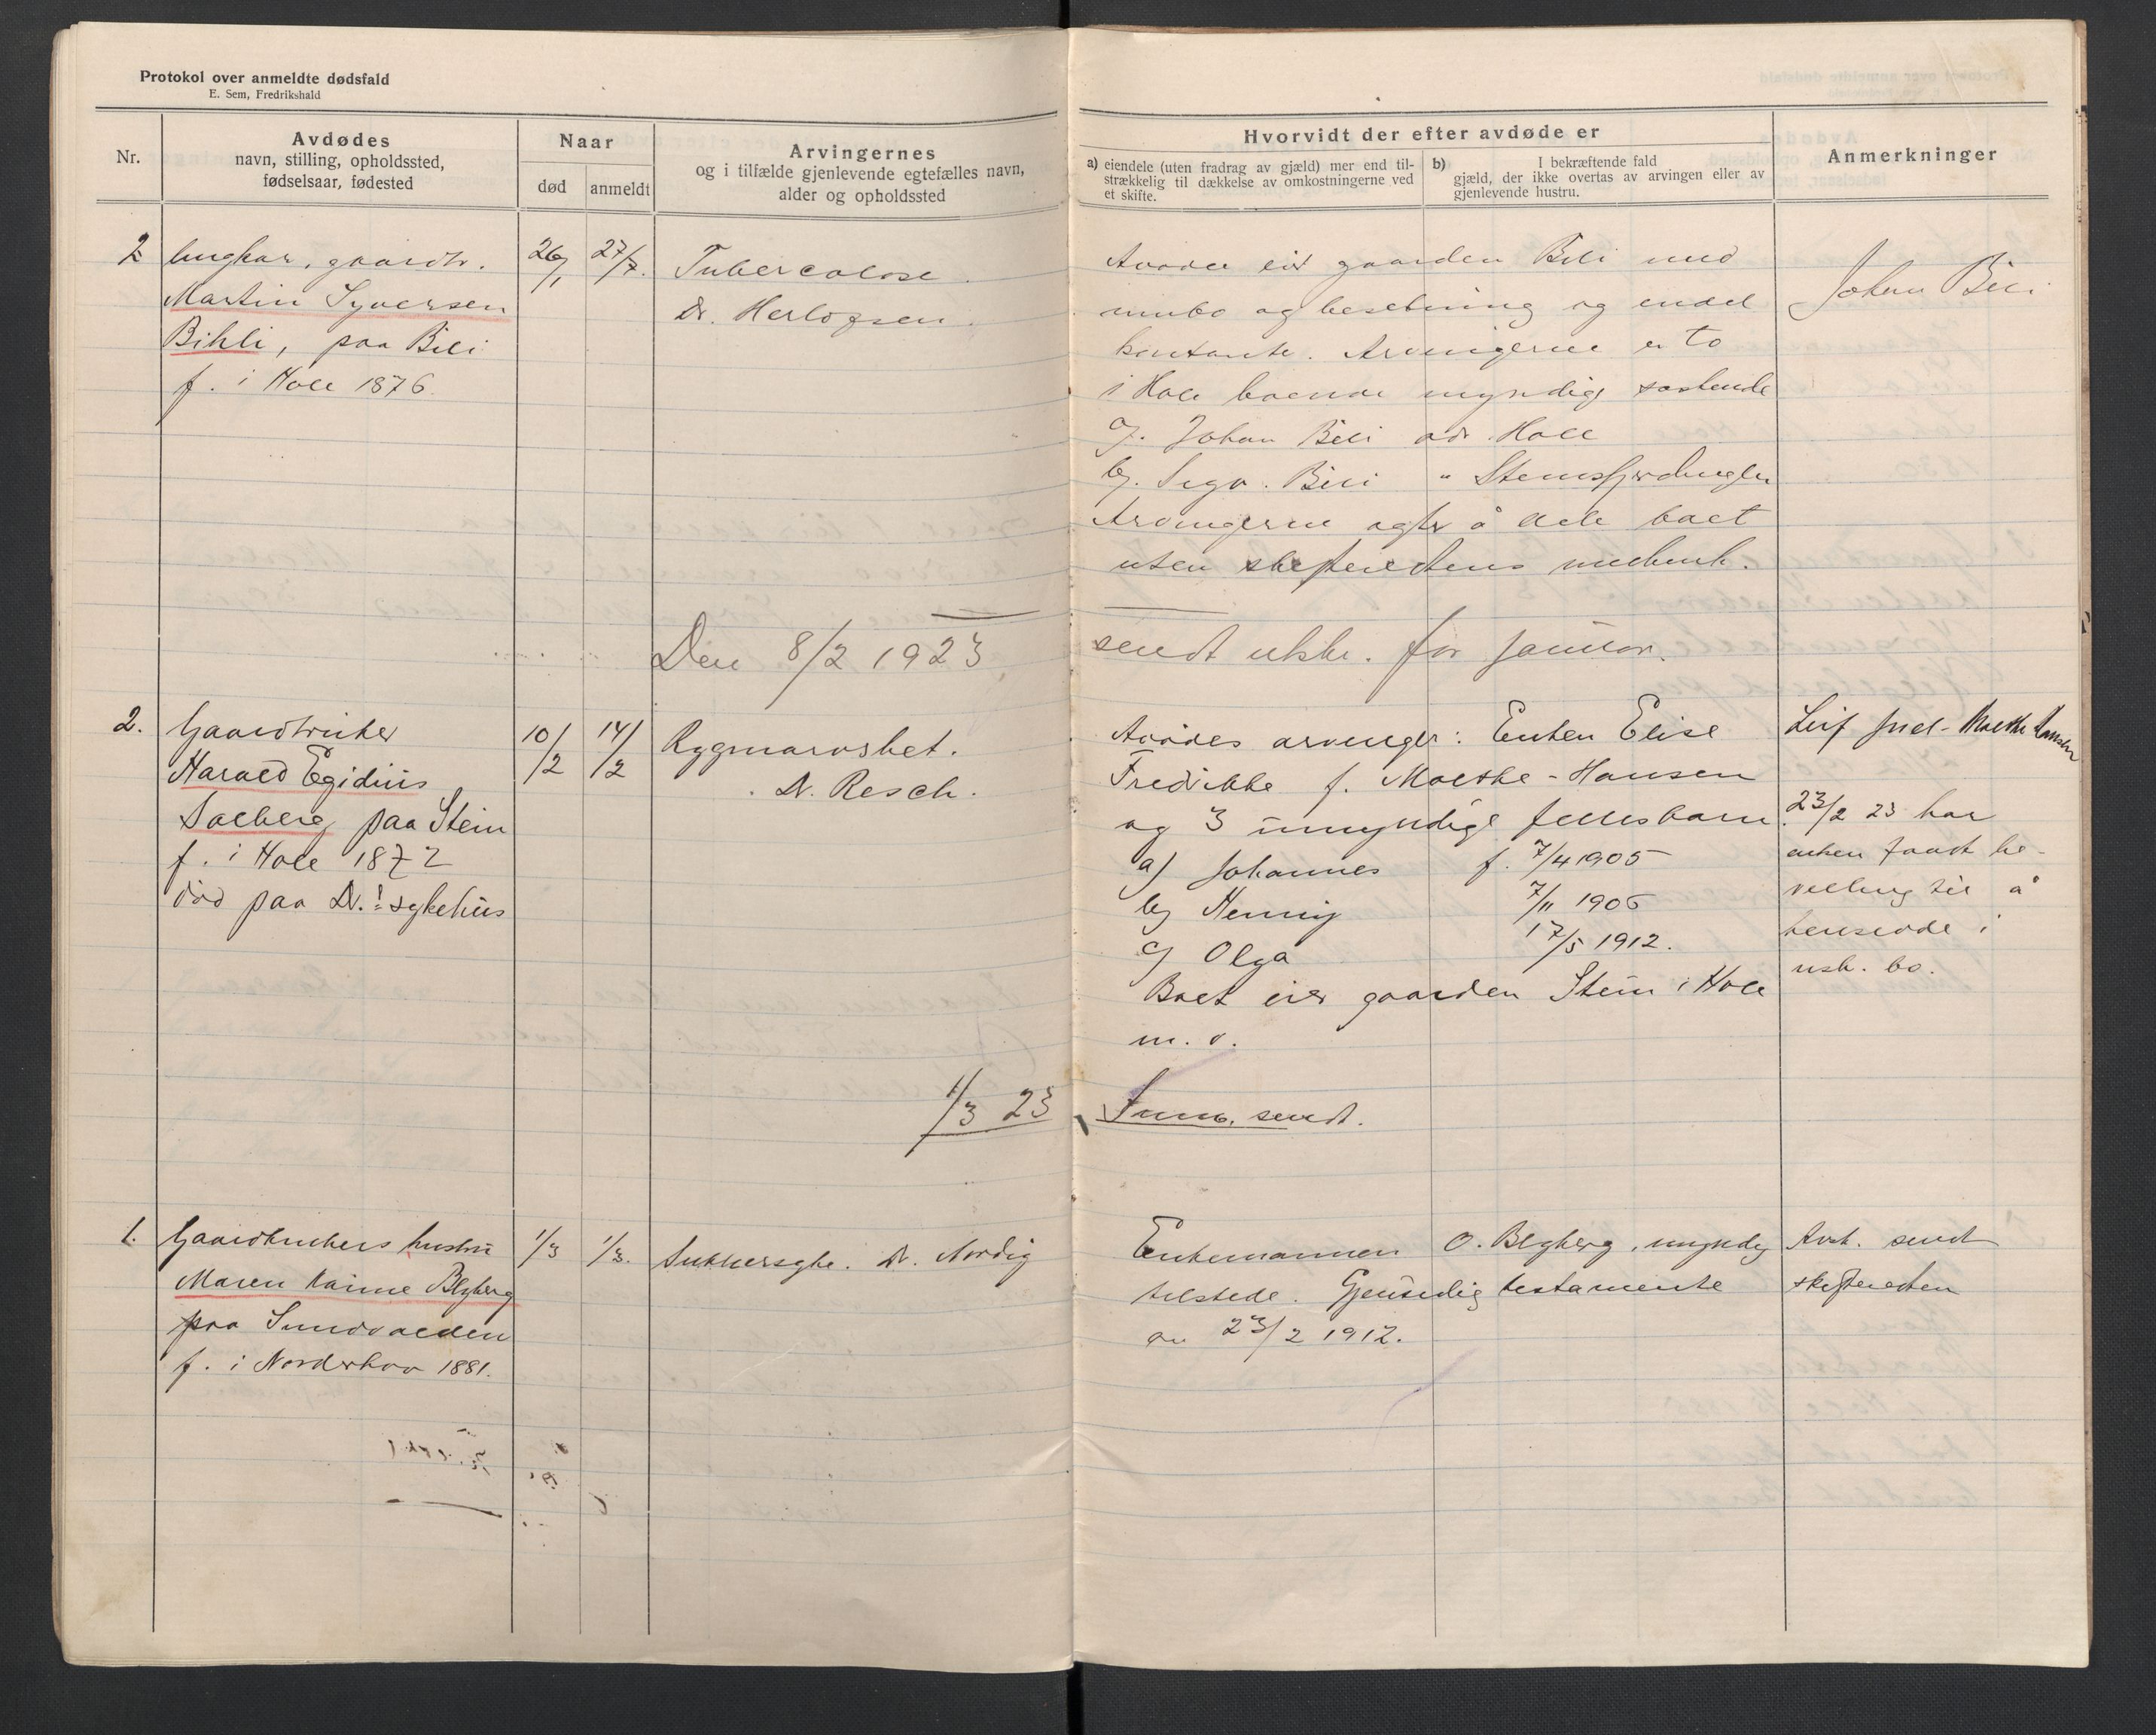 Protokol over anmeldte dødsfald
E. Sem, Fredrikshald
Nr.
Avdødes
navn, stilling, opholdssted,
fødselsaar, fødested
Naar
død
anmeldt
Arvingernes
og i tilfælde gjenlevende egtefælles navn,
alder og opholdssted
Hvorvidt der efter avdøde er
a) eiendele (uten fradrag av gjæld) mer end til-
strækkelig til dækkelse av omkostningerne ved
et skifte.
b) I bekræftende fald
gjæld, der ikke overtas av arvingen eller av
gjenlevende hustru.
Anmerkninger
2 Ungkar, gaardbr.
Martin Syversen
Bihli, paa Bili
f. i Hole 1876.
26/1
27/7.
Tubercolose.
Dr. Herlofsen.
Avdøde eier gaarden Bili med
innbo og besetning og endel
kontante. Arvingerne er to
i Hole boende myndige søskende
a). Johan Bili adr. Hole
b). Sigv. Bili " Stensfjerdingen
Arvingerne agter å dele boet
uten skifteretens medvirk.
Johan Bili
Den 8/2 1923
sendt utskr. for januar.
2. Gaardbruker
Harald Egidius
Solberg paa Stein
f. i Hole 1872
død paa Dr. sykehus
10/2
14/2
Rygmarvsbet.
Dr. Resch.
Avdødes arvinger: Enken Elise
Fredrikke f. Moltke-Hansen
og 3 umyndige fellesbarn.
a) Johannes f. 7/4 1905
b) Henning 7/11 1906
c) Olga 17/5 1912.
Boet eier gaarden Stein i Hole
m. v.
Leif Juel- Moltke Hansen
23/2 23 har
enken faadt be-
villing til å
hensidde i
usk. bo.
1/3 23
Innb. sendt.
1. Gaardbrukers hustru
Maren Kaime Blyberg
paa Sundvolden
f. i Norderhov 1881.
1/3
1/3.
Sukkersyke. Dr. Nordig
Enkemannen O. Blyberg, myndig
tilstede. Gjensidig testamente
av 23/2 1912.
Avsk. sendt
skifteretten